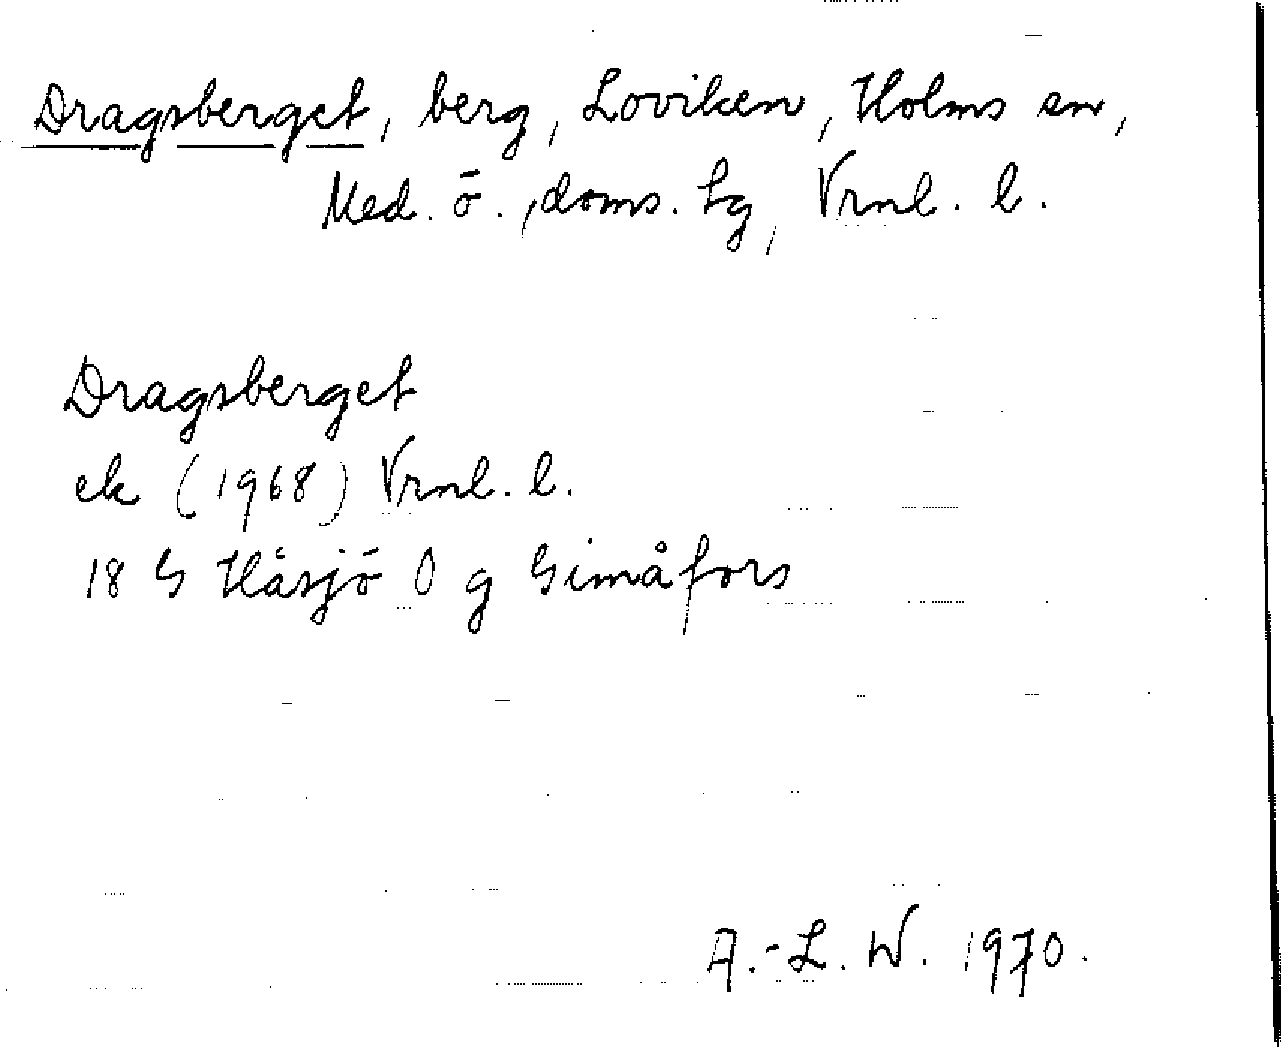 Dragsberget, berg, Loviken, Holms sn,
Med. ö. doms. sg, Vrnl. l.
Dragsberget
ek (1968) Vrnl. l.
18 G Håsjö O g Gimåfors
A.-L. W. 1970.